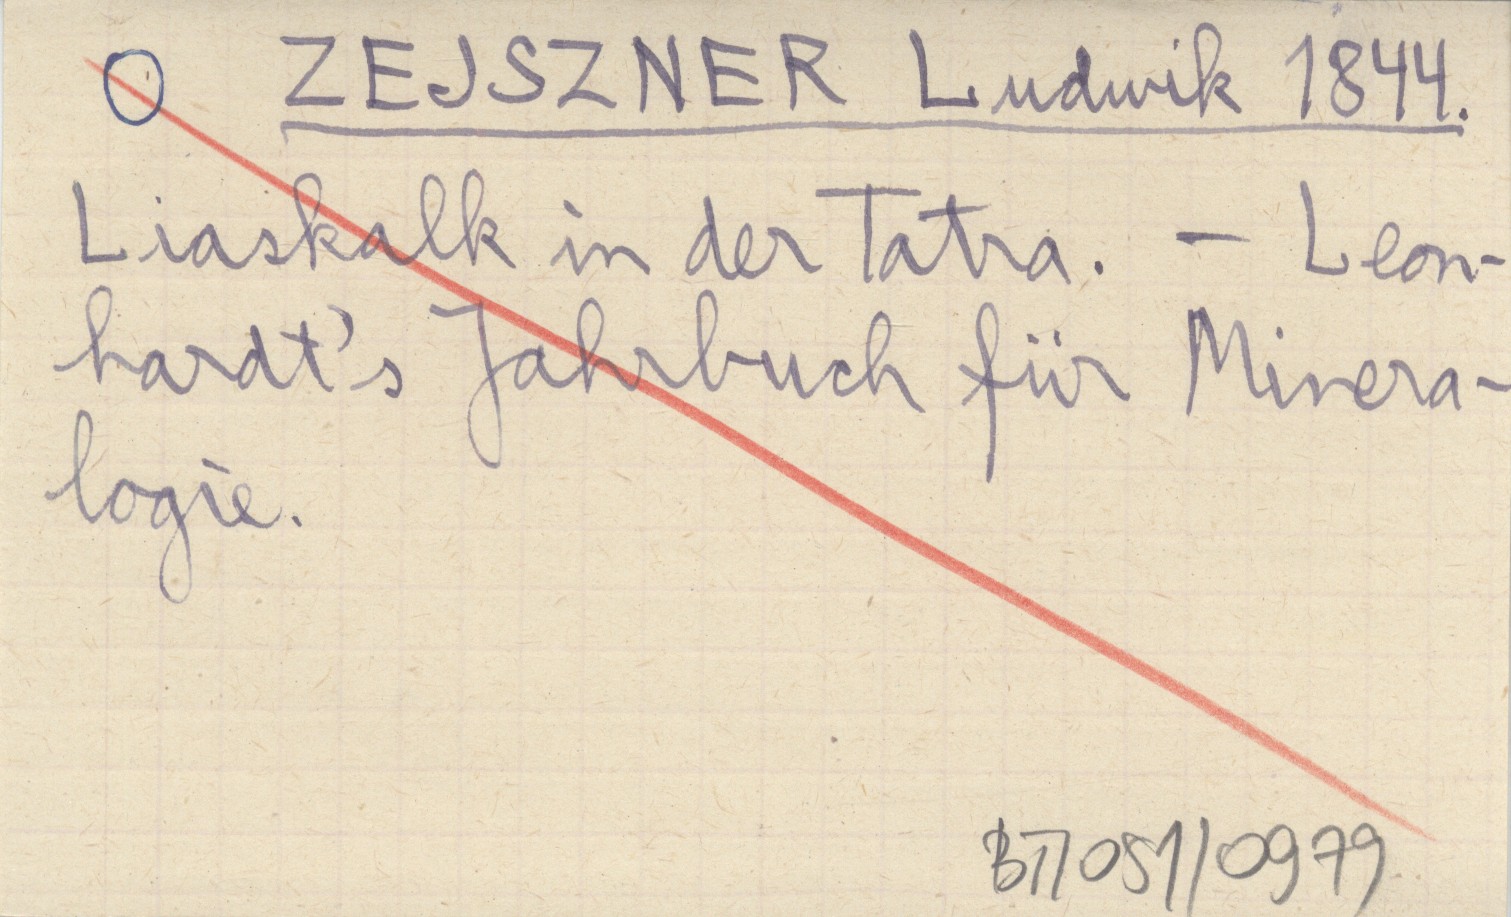 ZEJSZNER Ludwik 1844.
Liaskalk in der Tatra. - Leon-
hardt's Jahrbuch für Minera-
logie.
BT/051/0979